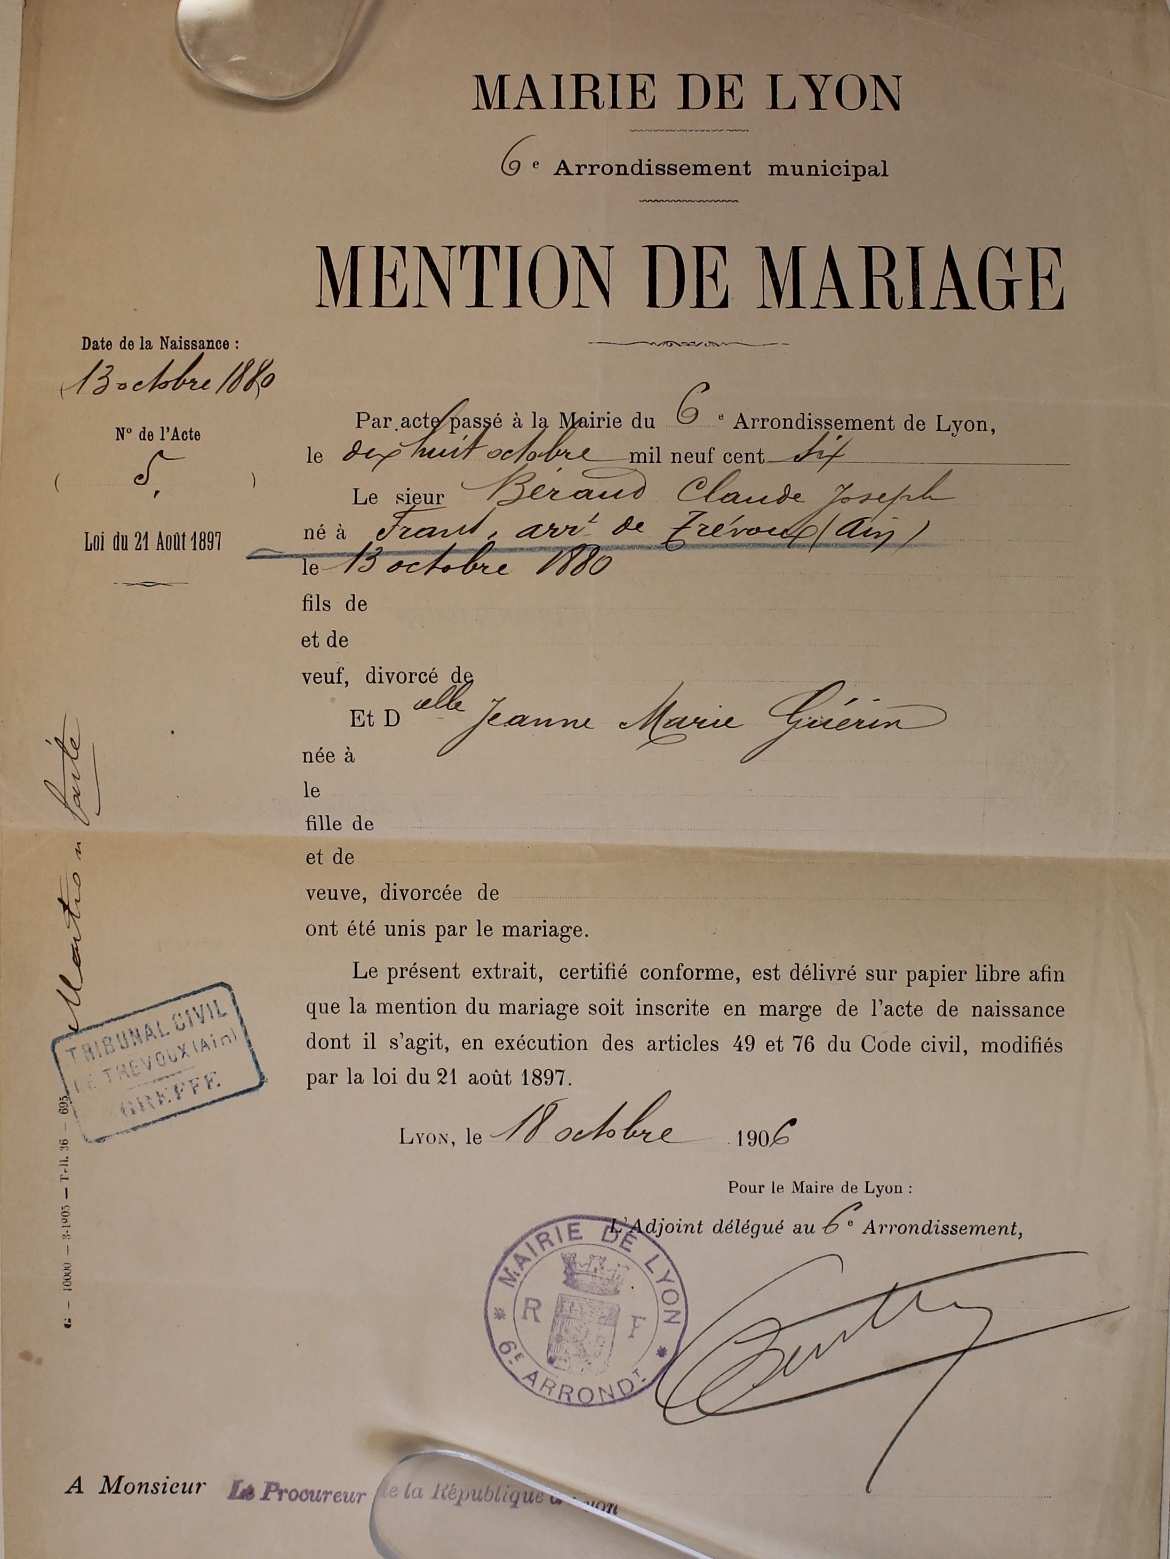 MAIRIE DE LYON
6e Arrondissement municipal
MENTION DE MARIAGE
Date de la Naissance :
(13 octobre 1880)
N° de l'Acte
( 5. )
Loi du 21 Août 1897
Par acte passé à la Mairie du 6e Arrondissement de Lyon,
le dix huit octobre mil neuf cent six
Le sieur Béraud Claude Joseph
né à Frans, arrt de Trévoux (Ain)
le 13 octobre 1880
fils de
et de
veuf, divorcé de
Et Delle Jeanne Marie Guérin
née à
le
fille de
et de
veuve, divorcée de
ont été unis par le mariage.
Le présent extrait, certifié conforme, est délivré sur papier libre afin
que la mention du mariage soit inscrite en marge de l'acte de naissance
dont il s'agit, en exécution des articles 49 et 76 du Code civil, modifiés
par la loi du 21 août 1897.
Lyon, le 18 octobre 1906
Pour le Maire de Lyon :
L'Adjoint délégué au 6e Arrondissement,
MAIRIE DE LYON
R F
6E ARRONDT
Mention faite
TRIBUNAL CIVIL
DE TREVOUX (Ain)
GREFFE
G — 10000 — 3-1905 — Tell. 36 — 695
A Monsieur Le Procureur de la République à Lyon